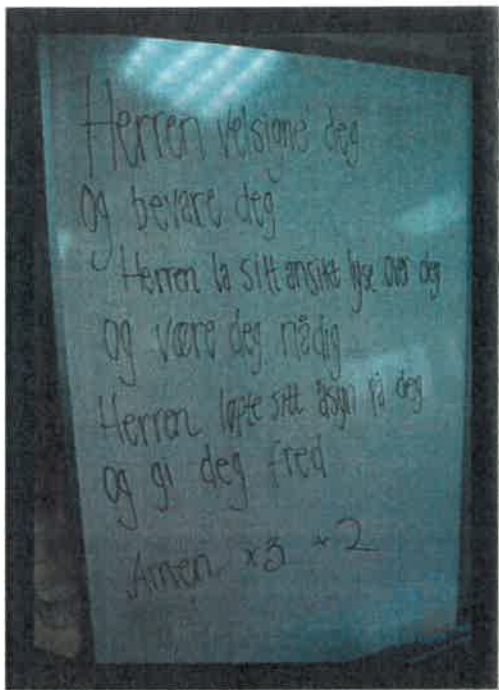 Herren velsigne deg
og bevare deg
Herren la sitt ansikt lyse over deg
og være deg nådig
Herren løfte sitt åsyn på deg
og gi deg fred
Amen x3 +2